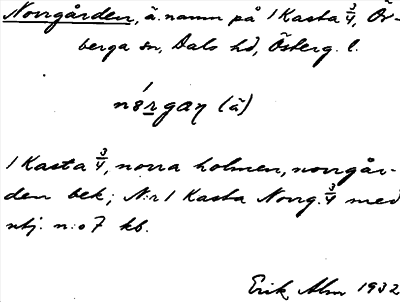 Norrgården, ä. namn på 1 Kasta 3/4, Ör-
berga sn, Dals hd, Österg. l.
(ä)
1 Kasta 3/4, norra holmen, norrgår-
den bek; N:r 1 Kasta Norrg. 3/4 med
utj. n:o 7 kb.
Erik Alm 1932